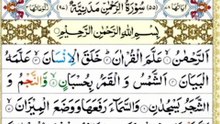 (٥٥) سُوْرَةُ الرَّحْمٰنِ مَدَنِيَّةٌ (٩٧)
بِسْمِ اللّٰهِ الرَّحْمٰنِ الرَّحِيْمِ
اَلرَّحْمٰنُ عَلَّمَ الْقُرْاٰنَ خَلَقَ الْاِنْسَانَ عَلَّمَهُ
الْبَيَانَ اَلشَّمْسُ وَ الْقَمَرُ بِحُسْبَانٍ وَّ النَّجْمُ وَ
الشَّجَرُ يَسْجُدٰنِ وَالسَّمَآءَ رَفَعَهَا وَوَضَعَ الْمِيْزَانَ